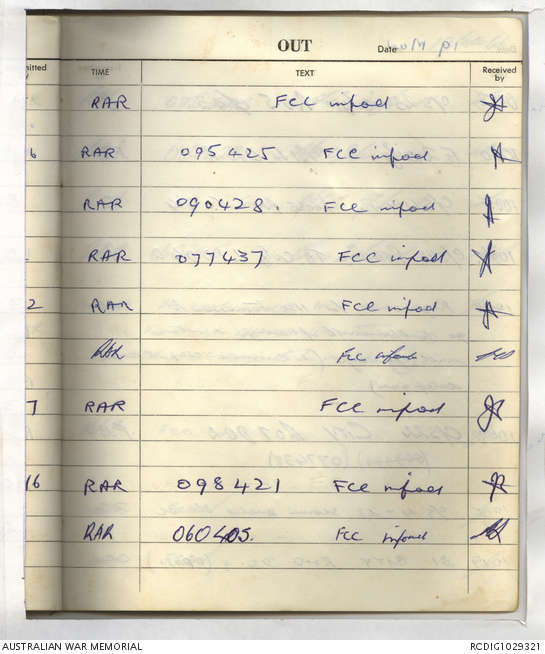 OUT
Date 19 Mar
TIME TEXT Received by
RAR FCC infod
6 RAR 095425 FCC infod
RAR 090428. FCC infod
RAR 077437 FCC infod
2 RAR FCC infod
RAR FCC infod
7 RAR FCC infod
16 RAR 098421 FCC infod
RAR 060405. FCC infod
AUSTRALIAN WAR MEMORIAL RCDIG1029321